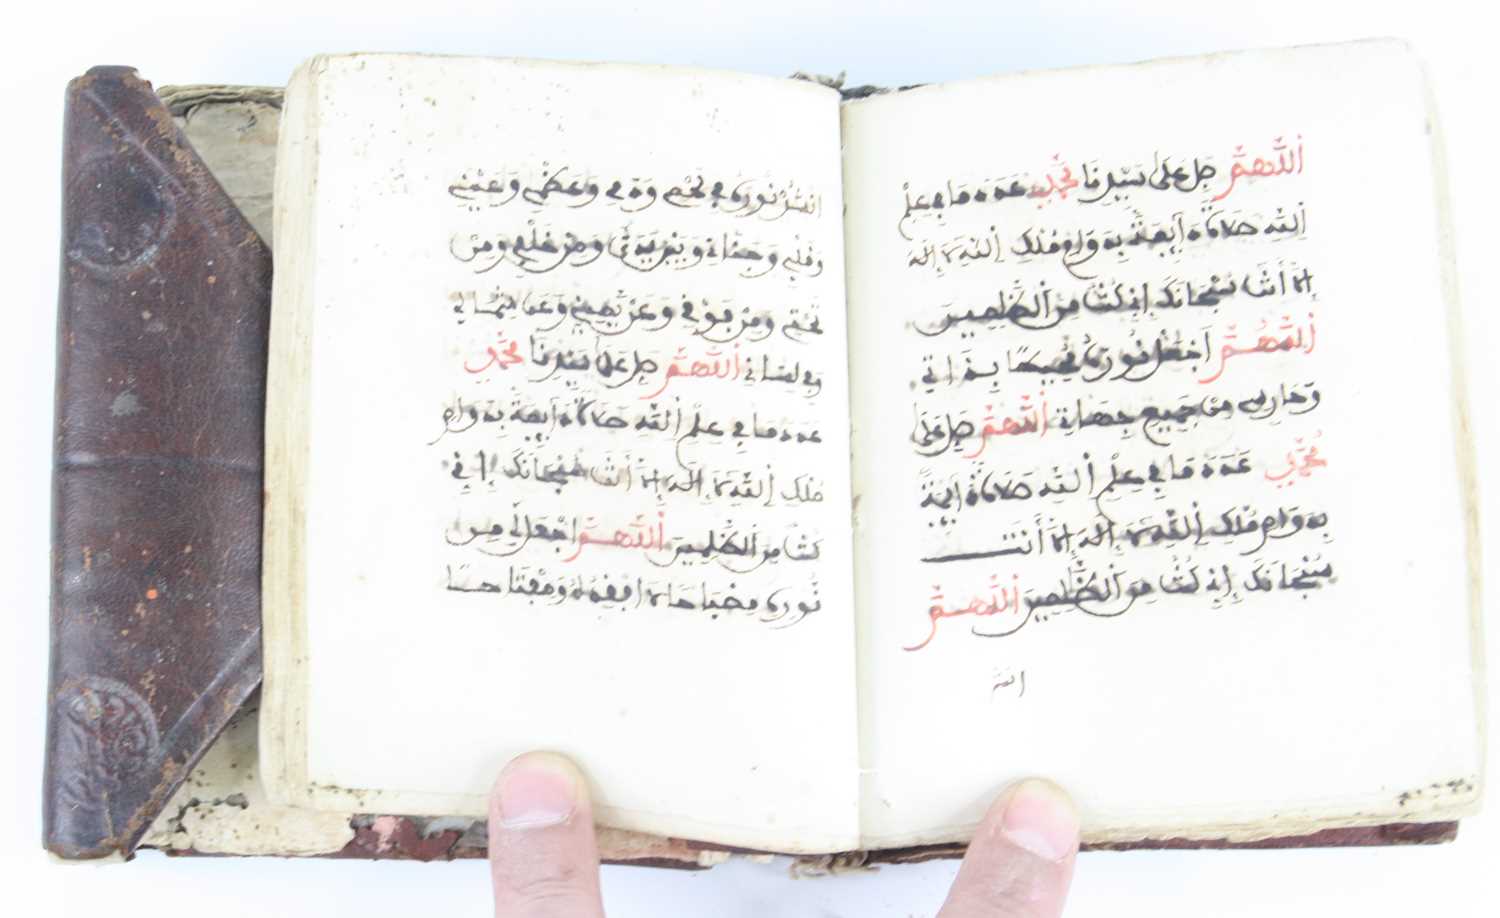 اللهم صل على سيدنا محمد عدد ما في علم
الله صلاة دايمة بدوام ملك الله لا إله
إلا أنت سبحانك إني كنت من الظلمين
اللهم اجعل نورك في
من جميع جهاتي اللهم صل على
محمد عدد ما في علم الله صلاة دايمة
بدوام ملك الله لا إله إلا أنت
سبحانك إني كنت من الظلمين اللهم
انشر
انشر نورك في لحمي ودمي وعظمي وعيني
وقلبي وجناني وبين يدي ومن خلفي ومن
تحتي ومن فوقي وعن يميني وعن شمالي
وفي لساني اللهم صل على سيدنا محمد
عدد ما في علم الله صلاة دايمة بدوام
ملك الله لا إله إلا أنت سبحانك إني
كنت من الظلمين اللهم اجعل لي من
نورك مصباحا لا ومفتاحا